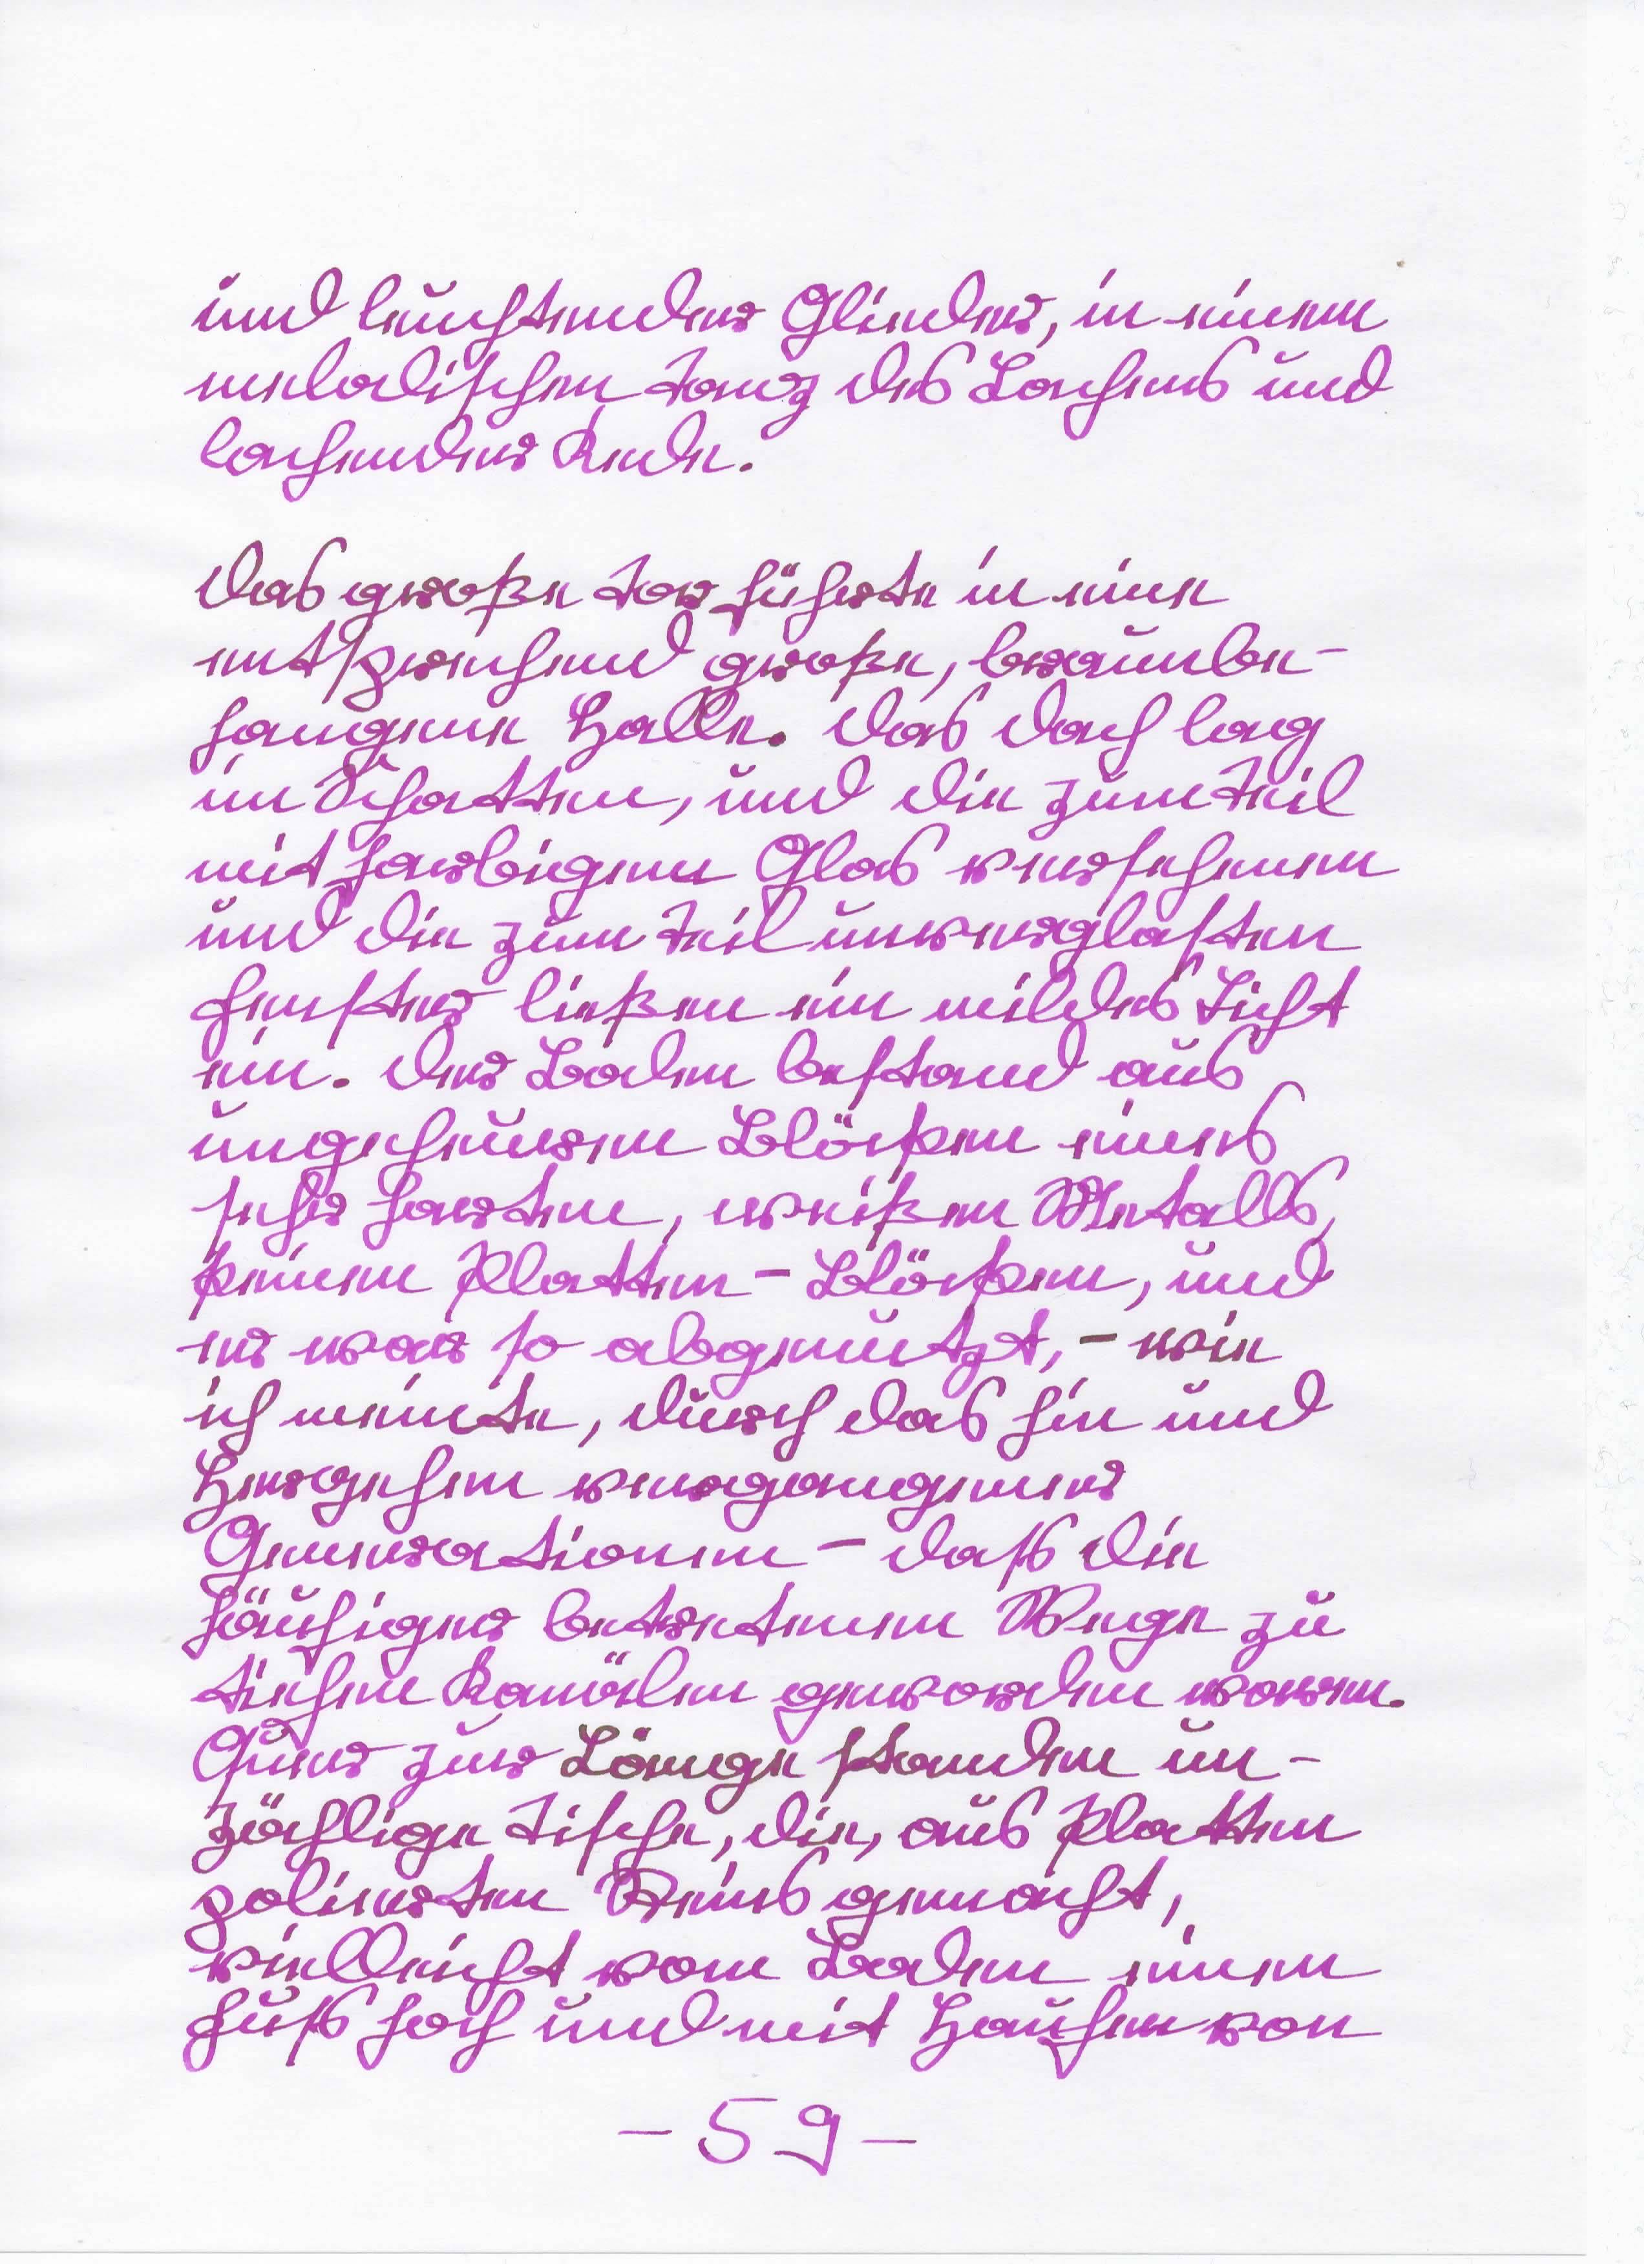 und leuchtender Glieder, in einem
melodischen Tanz des Lachens und
lachender Rede.
Das große Tor führte in eine
entsprechend große, braunbe-
hangene Halle. Das Dach lag
im Schatten, und die zum Teil
mit farbigem Glas versehenen
und die zum Teil unverglasten
Fenster ließen ein mildes Licht
ein. Der Boden bestand aus
ungeheuren Blöcken eines
sehr harten, weißen Metalls,
keinen Platten - Blöcken, und
er war so abgenutzt, - wie
ich meinte, durch das Hin und
Hergehen vergangener
Generationen - daß die
häufiger betretenen Wege zu
tiefen Kanälen geworden waren.
Quer zur Länge standen un-
zählige Tische, die, aus Platten
polierten Steins gemacht,
vielleicht vom Boden einen
Fuß hoch und mit Haufen von
- 59 -